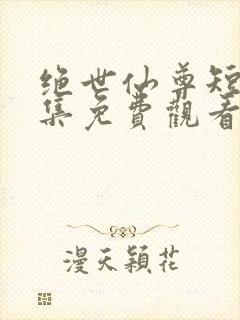 绝世仙尊短
集免費觀看
漫天穎花